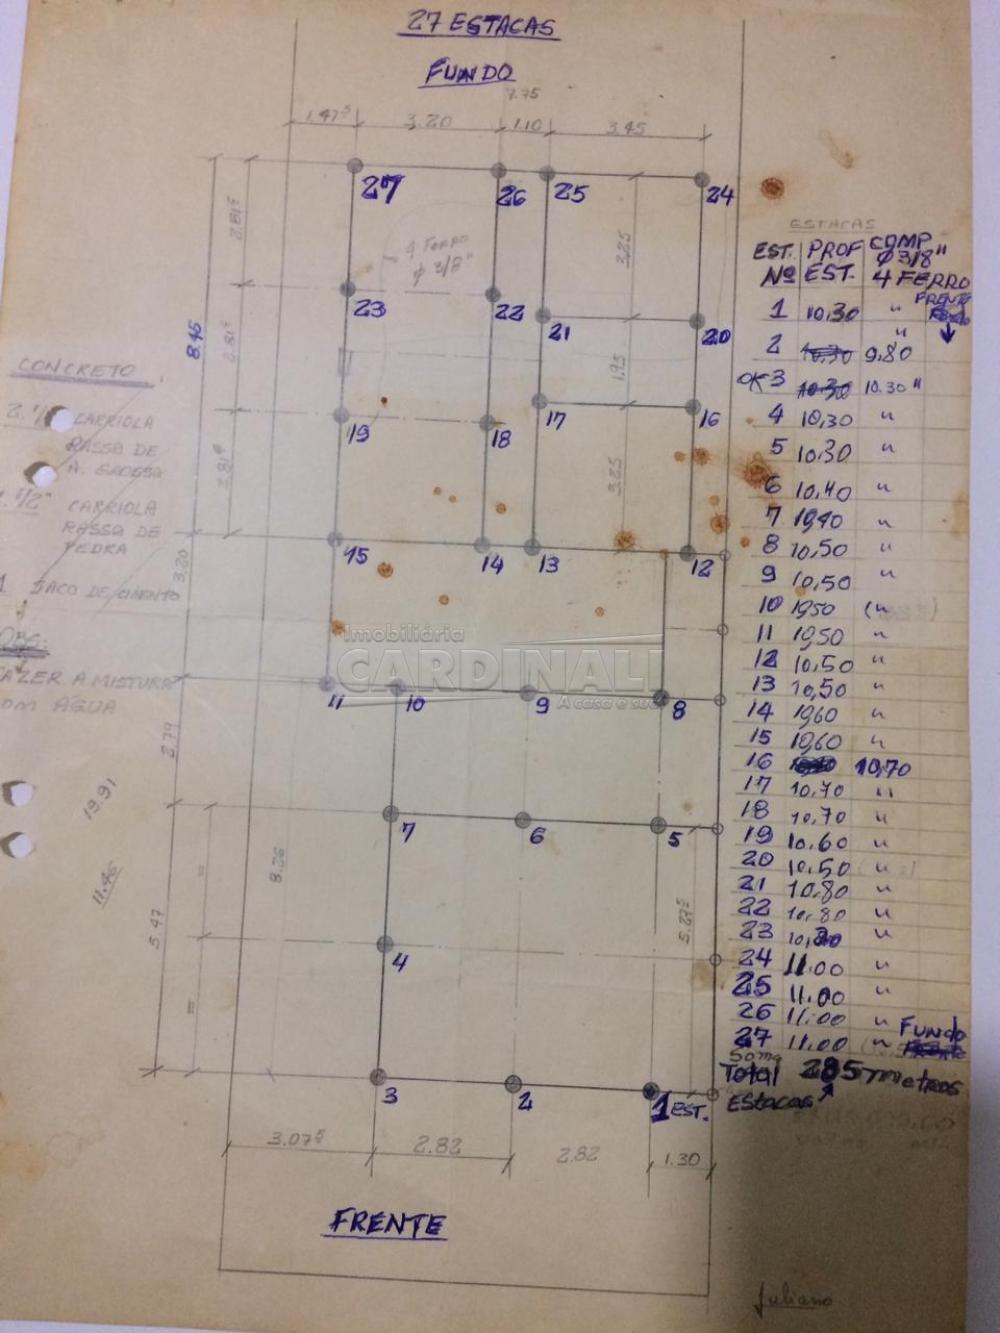 27 ESTACAS
FUNDO
7.75
1.47⁵ 3.20 1.10 3.45
27 26 25 24
2.81⁵
4 FERRO
Ø 3/8"
3.25
23 22 21 20
8.45
2.81⁵
1.95
19 18 17 16
2.81⁵
3.25
15 14 13 12
3.20
11 10 9 8
2.79
7 6 5
19.91
11.46
8.26
5.47
5.27⁵
4
3 2 1 EST.
3.07⁵ 2.82 2.82 1.30
FRENTE
CONCRETO
CARRIOLA
RASSA DE
A. GROSSA
1/2" CARRIOLA
RASSA DE
PEDRA
1 SACO DE CIMENTO
OBS:
FAZER A MISTURA
COM ÁGUA
Imobiliária
CARDINALI
A casa é sua
ESTACAS
EST. PROF COMP
Ø 3/8"
Nº EST. 4 FERRO
FRENTE
1 10,30 "
2 10,30 9,80 "
OK 3 10,30 10.30 "
4 10,30 "
5 10,30 "
6 10,40 "
7 10,40 "
8 10,50 "
9 10,50 "
10 10,50 "
11 10,50 "
12 10,50 "
13 10,50 "
14 10,60 "
15 10,60 "
16 10,70
17 10,70 "
18 10,70 "
19 10,60 "
20 10,50 "
21 10,80 "
22 10,80 "
23 "
24 11.00 "
25 11.00 "
26 11.00 "
27 11.00 " FUNDO
Soma
Total 285 metros
Estacas
Juliano